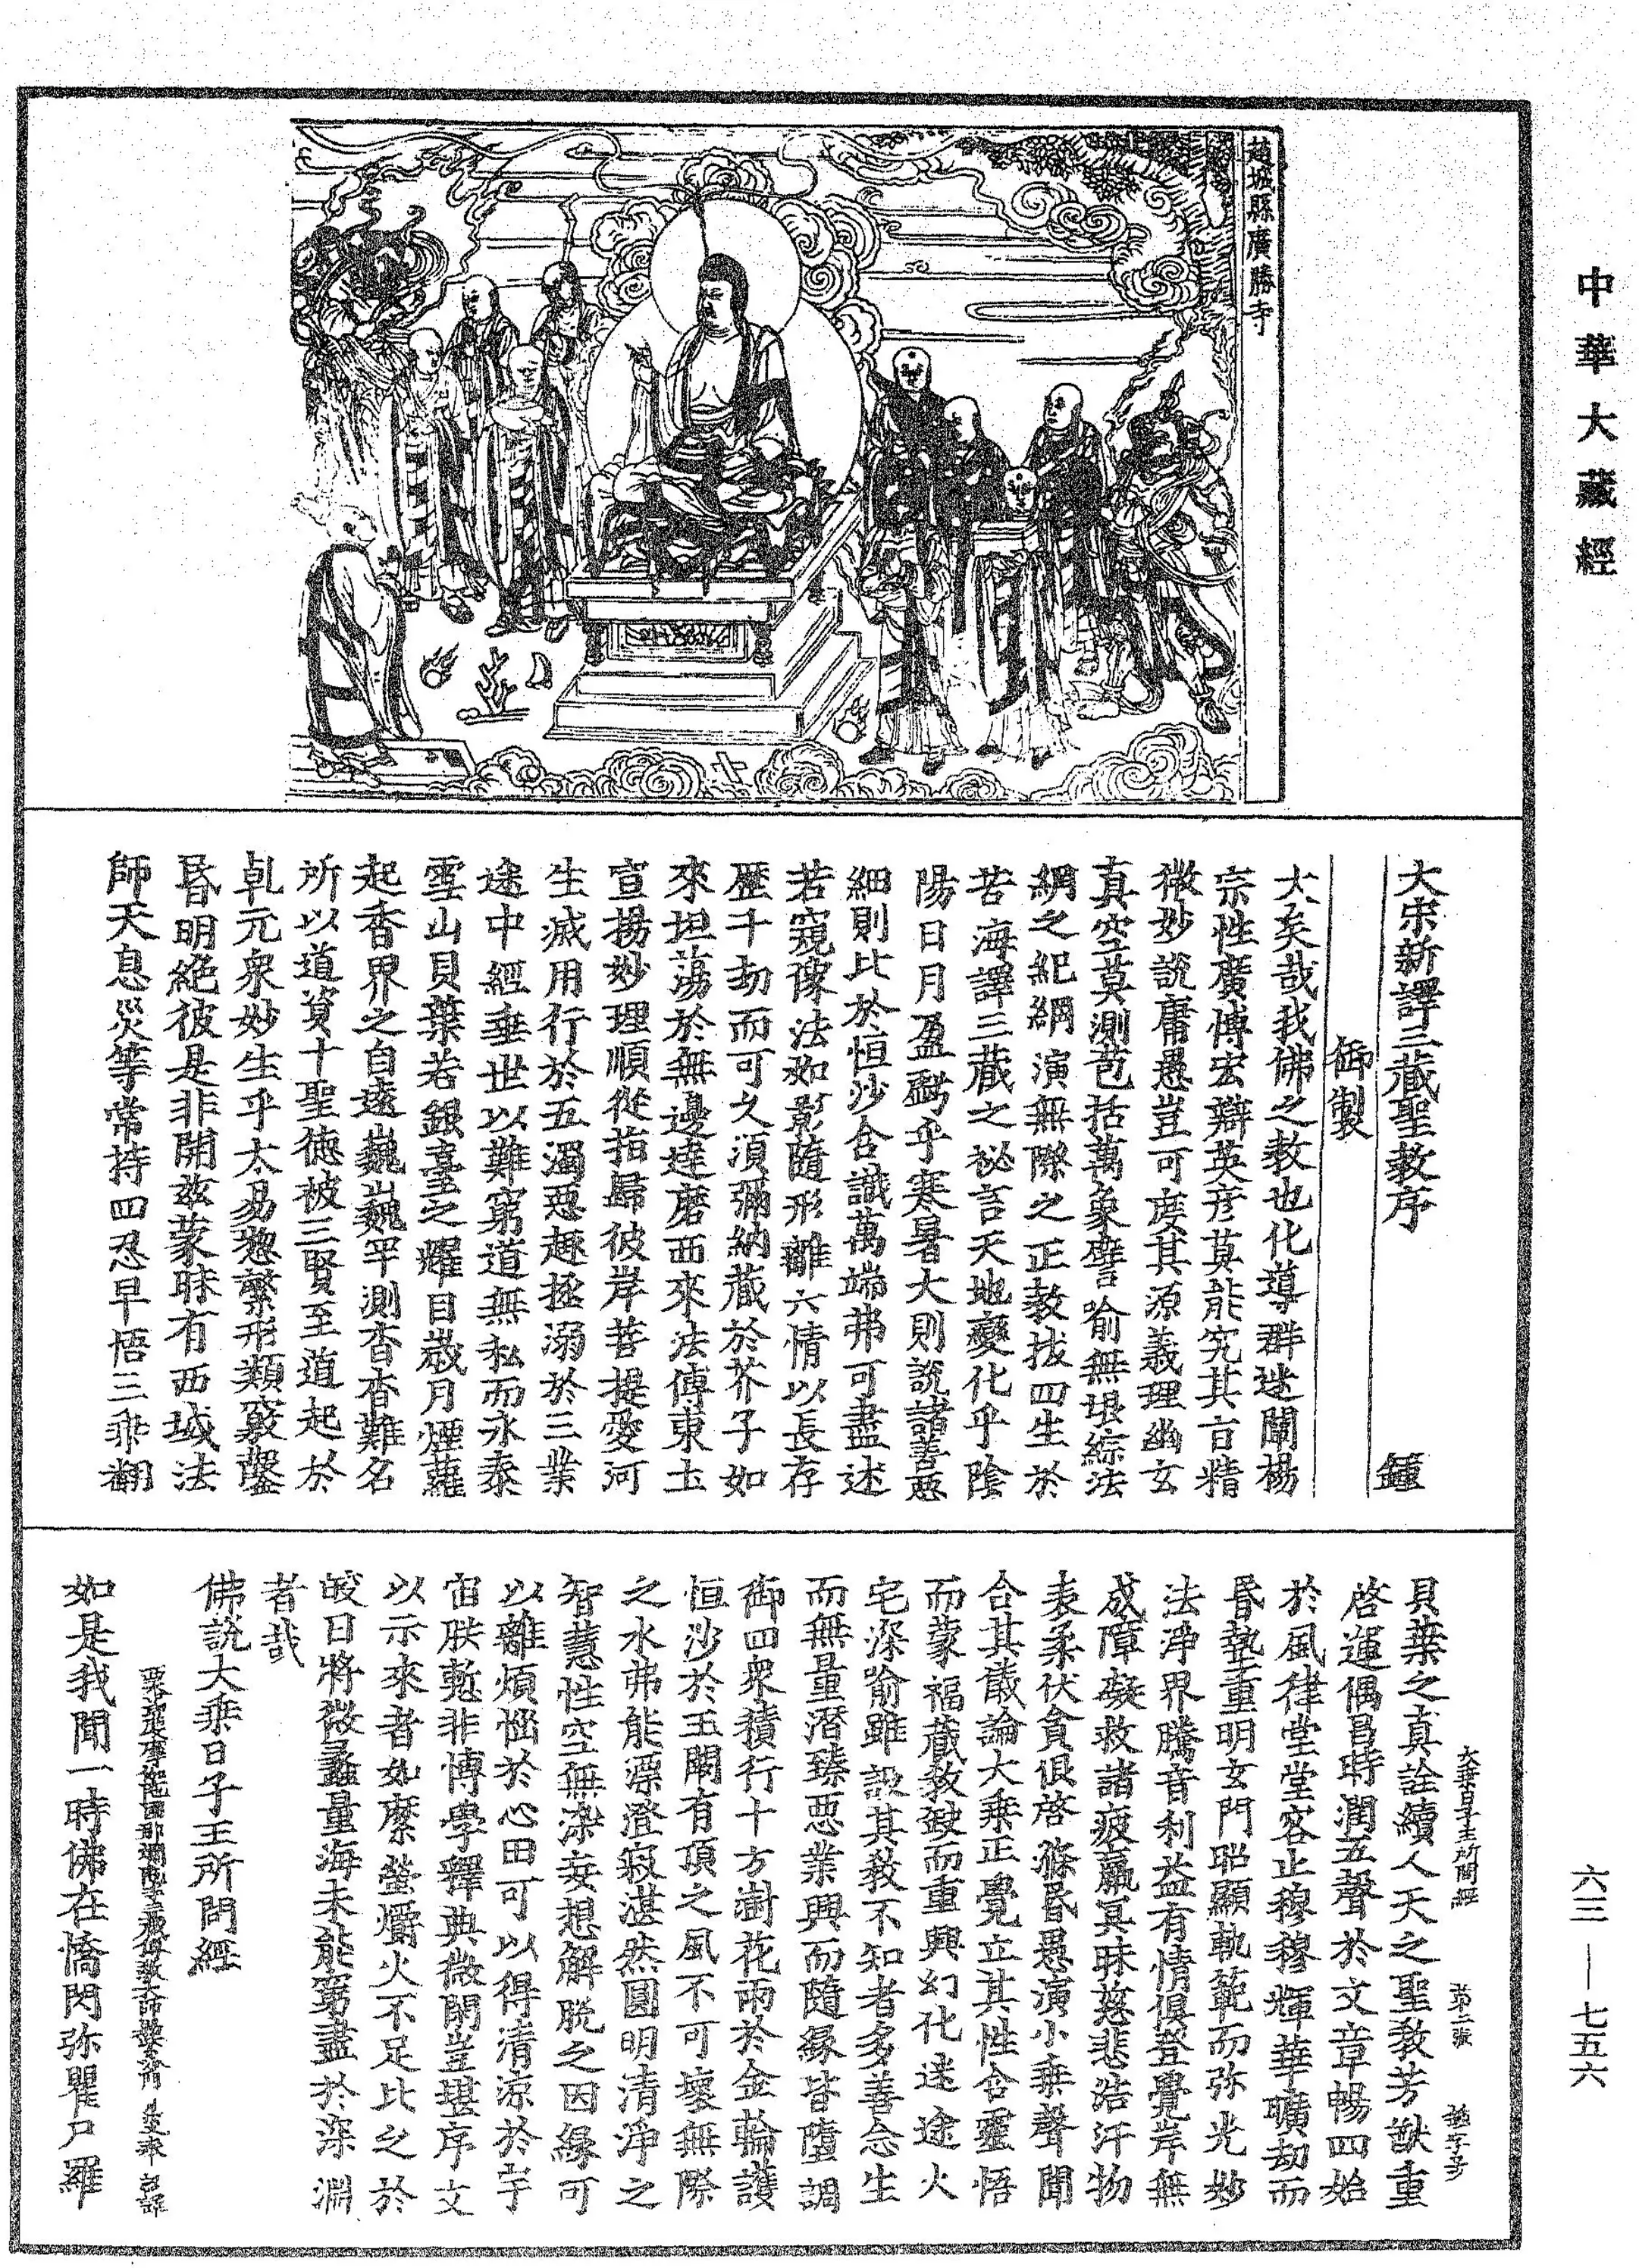 中華大藏經
趙城縣廣勝寺
大宋新譯三藏聖教序　鍾
御製
大矣哉我佛之教也化導群迷闡揚
宗性廣博宏辯英彦莫能究其旨精
微妙說庸愚豈可度其源義理幽玄
真空莫測苞括萬象譬喻無垠綜法
網之紀綱演無際之正教拔四生於
苦海譯三藏之祕言天地變化乎陰
陽日月盈虧乎寒暑大則說諸善惡
細則比於恒沙含識萬端弗可盡述
若窺像法如影隨形離六情以長存
歷千劫而可久須彌納藏於芥子如
來坦蕩於無邊達磨西來法傳東土
宣揚妙理順從指歸彼岸菩提愛河
生滅用行於五濁惡趣拯溺於三業
途中經垂世以難窮道無私而永泰
雪山貝葉若銀臺之耀日歲月煙蘿
起香界之自遠巍巍罕測杳杳難名
所以道資十聖德被三賢至道起於
乹元衆妙生乎太易揔繁形類竅鑿
昏明絕彼是非開兹蒙昧有西域法
師天息災等常持四忍早悟三乘翻
大乘日子王所問經　第二張
貝葉之真詮續人天之聖教芳猷重
啓運偶昌時潤五聲於文章暢四始
於風律堂堂容止穆穆輝華曠劫而
昏墊重明玄門昭顯軌範而弥光妙
法淨界騰音利益有情俱登覺岸無
成障礙救諸疲羸冥昧慈悲浩汗物
表柔伏貪很啓滌昏愚演小乘聲聞
合其儀論大乘正覺立其性含靈悟
而蒙福藏教缺而重興幻化迷途火
宅深喻雖設其教不知者多善念生
而無量潛臻惡業興而隨緣皆墮調
御四衆積行十方澍花雨於金輪護
恒沙於玉闕有頂之風不可壞無際
之水弗能漂澄寂湛然圓明清淨之
智慧性空無染妄想解脫之因緣可
以離煩惱於心田可以得清涼於宇
宙朕慙非博學釋典微閑豈堪序文
以示來者如縻螢爝火不足比之於
皎日將微蠡量海未能窮盡於深淵
者哉
佛說大乘日子王所問經
如是我聞一時佛在憍閃弥瞿尸羅
六三—七五六